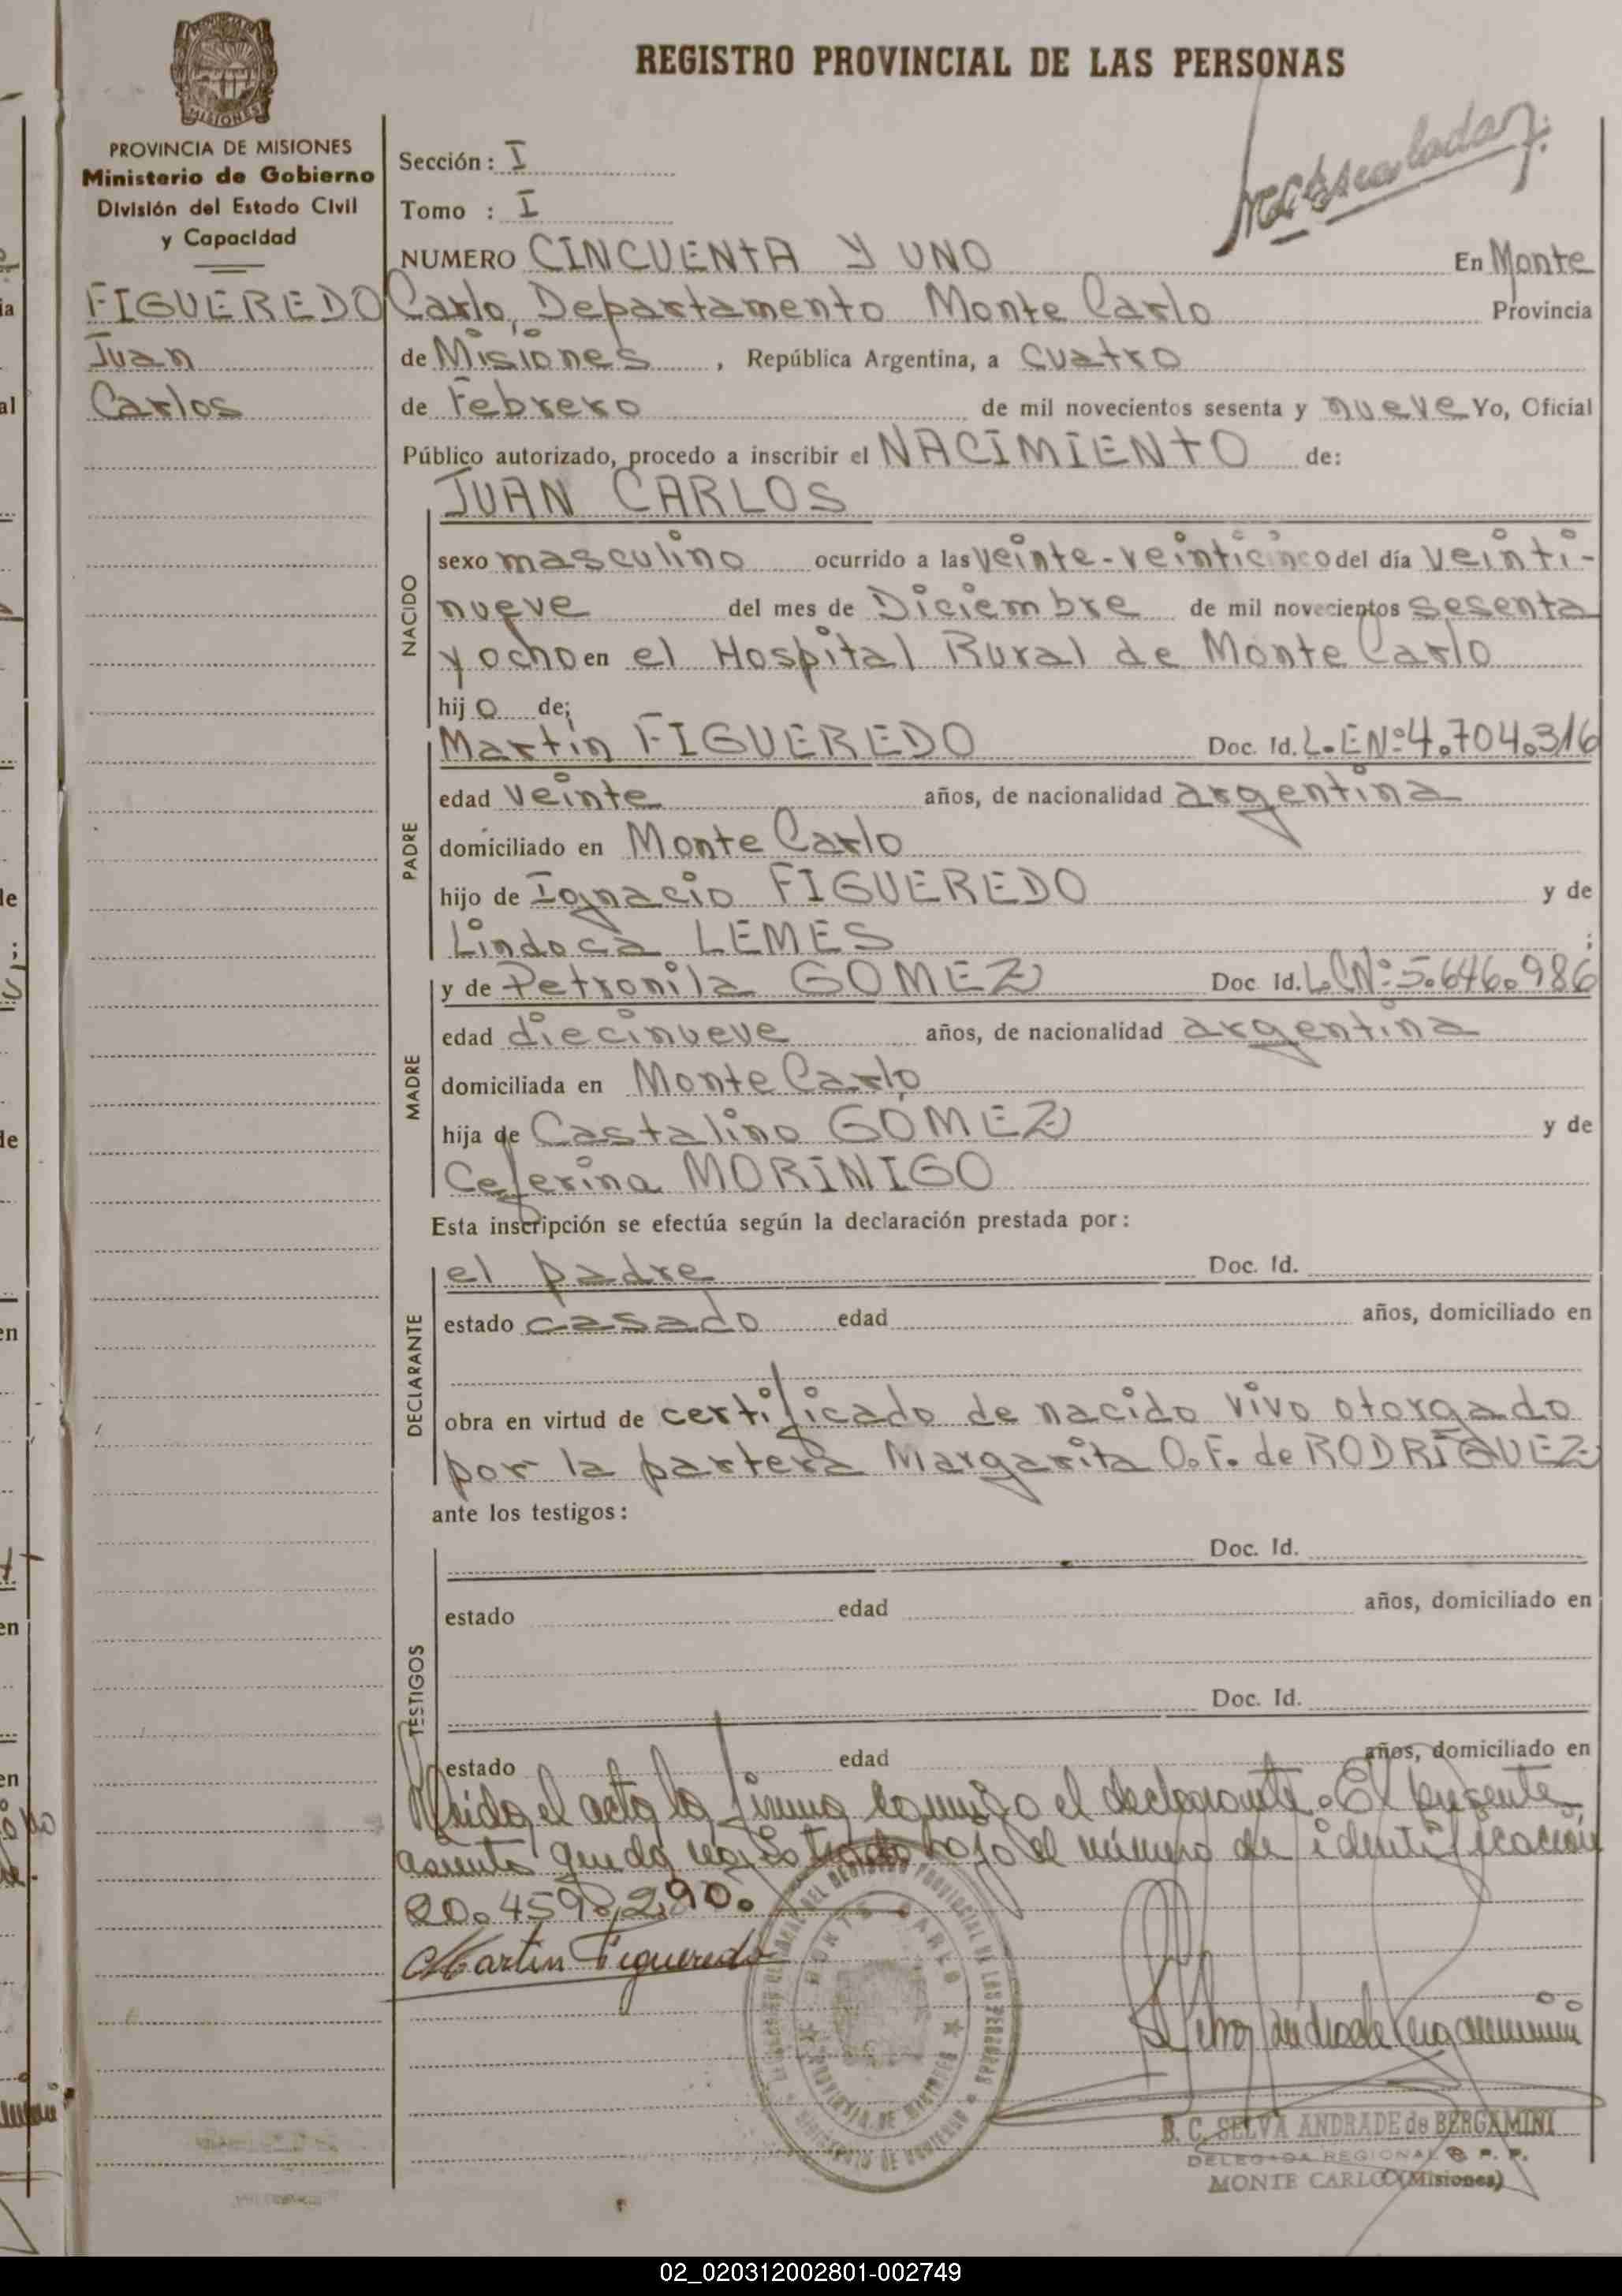 REGISTRO PROVINCIAL DE LAS PERSONAS
MISIONES
PROVINCIA DE MISIONES
Ministerio de Gobierno
División del Estado Civil
y Capacidad
FIGUEREDO
Juan
Carlos
Sección: I
Tomo : I
NUMERO CINCUENTA Y UNO En Monte
Carlo, Departamento Monte Carlo Provincia
de Misiones, República Argentina, a cuatro
de Febrero de mil novecientos sesenta y nueve Yo, Oficial
Público autorizado, procedo a inscribir el NACIMIENTO de:
JUAN CARLOS
NACIDO
sexo masculino ocurrido a las veinte-veinticinco del día veinti-
nueve del mes de Diciembre de mil novecientos sesenta
y ocho en el Hospital Rural de Monte Carlo
hijo de;
PADRE
Martín FIGUEREDO Doc. Id. L.EN:4.704.316
edad veinte años, de nacionalidad argentina
domiciliado en Monte Carlo
hijo de Ignacio FIGUEREDO y de
Lindoca LEMES ;
MADRE
y de Petronila GOMEZ Doc Id. L.CN:5.646.986
edad diecinueve años, de nacionalidad argentina
domiciliada en Monte Carlo
hija de Castalino GOMEZ y de
Ceferina MORINIGO
Esta inscripción se efectúa según la declaración prestada por:
DECLARANTE
el padre Doc. Id.
estado casado edad años, domiciliado en
obra en virtud de certificado de nacido vivo otorgado
por la partera Margarita O.F. de RODRÍGUEZ
ante los testigos:
TESTIGOS
Doc. Id.
estado edad años, domiciliado en
Doc. Id.
estado edad años, domiciliado en
Leida el acta la firma conmigo el declarante. El presente
asiento queda registrado bajo el número de identificación
20.459.290.
Martin Figueredo
B. C. SELVA ANDRADE de BERGAMINI
DELEGADA REGIONAL R. P. P.
MONTE CARLO (Misiones)
02_020312002801-002749